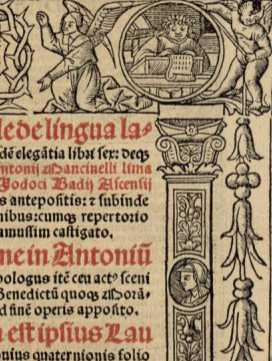 le de lingua la⸗
dē elegātia libri sex: deqȝ
ntonij Mancinelli lima
Jodoci Badij Ascensij
s antepositis: ⁊ subinde
nibus: cumqȝ repertorio
amussim castigato.
ne in Antoniū
pologus itē ceu actꝰ sceni
Benedictū quoqȝ Morā⸗
d finē operis apposito.
a est ipsius Lau
nuius quaternionis folio